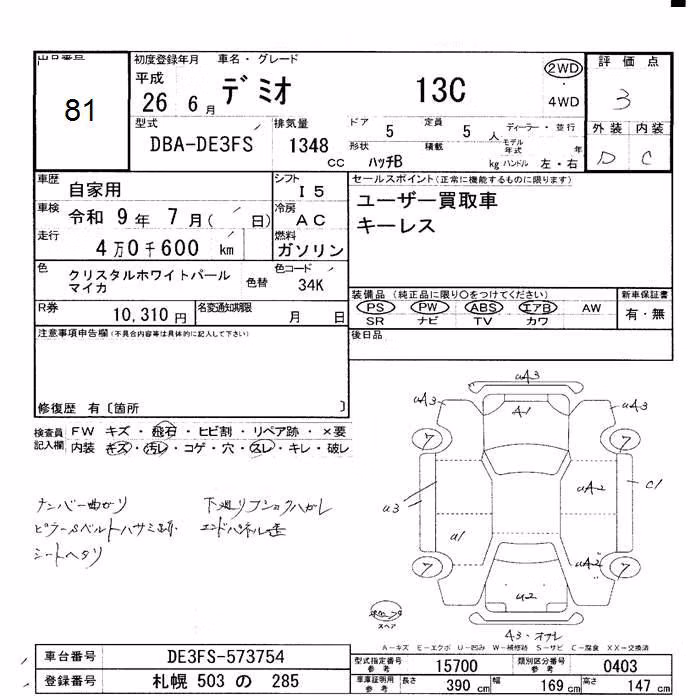 出品番号 81
初度登録年月 車名・グレード 評価点
平成 26 年 6 月 デミオ 13C 2WD ・ 4WD 3
型式 DBA-DE3FS
排気量 1348 CC
ドア 5 定員 5 人 ディーラー・並行
形状 ハッチB 積載 kg モデル年式 年 ハンドル 左・右
外装 内装
D C
車歴 自家用 シフト I 5
車検 令和 9 年 7 月 ( 日) 冷房 AC
走行 4 万 0 千 600 km 燃料 ガソリン
色 クリスタルホワイトパールマイカ 色替 色コード 34K
R券 10,310 円 名変通知期限 月 日
セールスポイント(正常に機能するものに限ります)
ユーザー買取車
キーレス
装備品(純正品に限り○をつけてください) 新車保証書
PS PW ABS エアB AW 有・無
SR ナビ TV カワ
後日品
注意事項申告欄(不具合内容等は具体的に記入して下さい)
修復歴 有〔箇所 〕
検査員記入欄 FW キズ・飛石・ヒビ割・リペア跡・×要
内装 キズ・汚レ・コゲ・穴・スレ・キレ・破レ
ナンバー曲がり
ピラーSベルトハサミ跡
シートヘタリ
下廻りフックハガレ
エンドパネル歪
uA3
A1
uA3 uA3
7 7
u3 uA2 C1
u1 uA2
7 7
u2
スペア
A3・オフレ
A-キズ E-エクボ U-凹み W-補修跡 S-サビ C-腐食 XX-交換済
車台番号 DE3FS-573754
登録番号 札幌 503 の 285
型式指定番号 参考 15700 類別区分番号 参考 0403
車庫証明用 参考 長さ 390 cm 幅 169 cm 高さ 147 cm